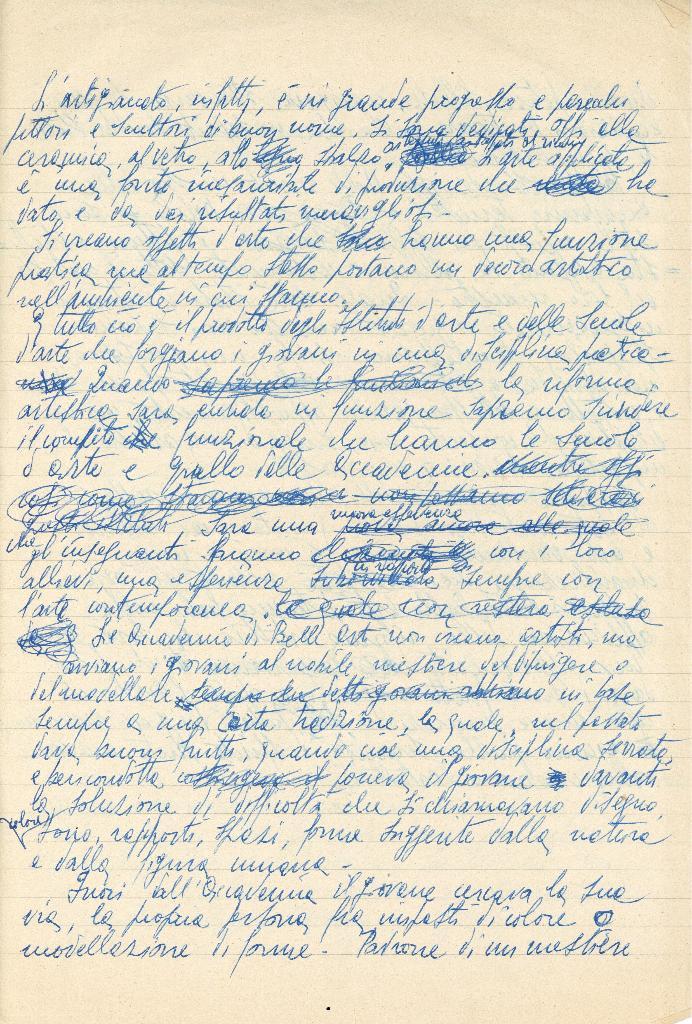 L'artigianato, infatti, è in grande progresso e parecchi
pittori e scultori di buon nome, si sono dedicati oggi alla
ceramica, al vetro, allo sbalzo, L'arte applicata
è una fonte inesauribile di produzione che ha
dato, e dà, dei risultati meravigliosi.
Si creano oggetti d'arte che hanno una funzione
pratica, ma al tempo stesso portano un decoro artistico
nell'ambiente in cui stanno.
E tutto ciò è il prodotto degli Istituti d'arte e delle Scuole
d'arte che forgiano i giovani in una disciplina pratica-
Quando la riforma
artistica sarà entrata in funzione sapremo scindere
il compito funzionale che hanno le Scuole
d'arte e quello delle Accademie.
Sarà una nuova esperienza
che gl'insegnanti faranno con i loro
allievi, una esperienza in rapporto sempre con
l'arte contemporanea,
Le Accademie di Belle Arti non creano artisti, ma
avviano i giovani al nobile mestiere del dipingere o
del modellare, in base
sempre a una certa tradizione, la quale, nel passato
dava buoni frutti, quando cioè una disciplina serrata
e ben condotta poneva il giovane davanti
la soluzione di difficoltà che si chiamavano disegno,
colore, tono, rapporti, spazi, forme suggerite dalla natura
e dalla figura umana-
Fuori dall'Accademia il giovane cercava la sua
via, la propria persona fra impasti di colore o
modellazione di forme- Padrone di un mestiere